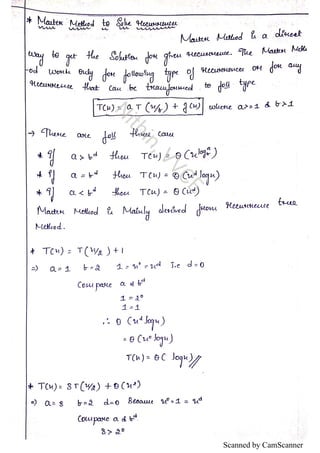 * Master Method to Solve Recurrences
Master Method is a direct
way to get the Solution for given recurrence. The Master Meth
-od works only for following type of recurrences or for any
recurrence that can be transformed to foll type
T(n) = a T(n/b) + f(n) where a>=1 & b>1
→ There are foll three case
* If a > b^d then T(n) = Θ(n^log_b a)
* If a = b^d then T(n) = Θ(n^d log n)
* If a < b^d then T(n) = Θ(n^d)
Master Method is Mainly derived from recurrence tree
Method.
* T(n) = T(n/2) + 1
=) a = 1 b = 2 1 = n^0 = n^d i.e d = 0
Compare a & b^d
1 = 2^0
1 = 1
∴ Θ(n^d log n)
= Θ(n^0 log n)
T(n) = Θ( log n)//
* T(n) = 8T(n/2) + Θ(n^2)
=) a = 8 b = 2 d = 0 Because n^0 = 1 = n^d
Compare a & b^d
8 > 2^0
Scanned by CamScanner